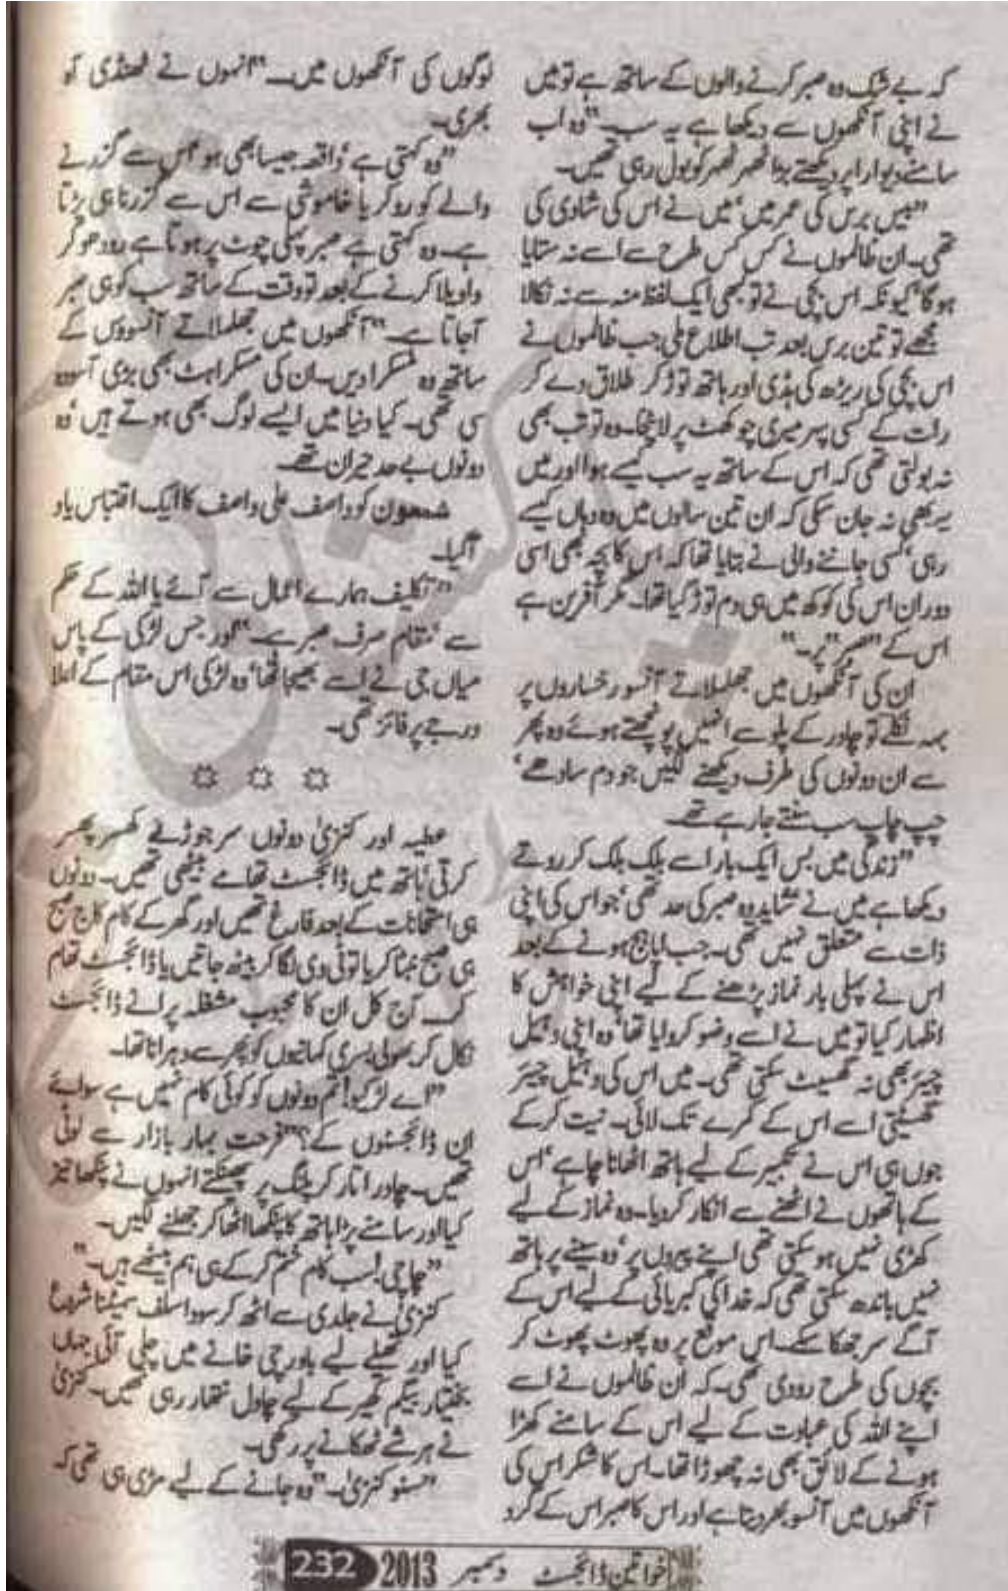 کہ بے شک وہ صبر کرنے والوں کے ساتھ ہے تو میں
نے اپنی آنکھوں سے دیکھا ہے یہ سب۔" وہ اب
سامنے دیوار پر دیکھتے بڑا ٹھہر ٹھہر کو بول رہی تھیں۔
"بیس برس کی عمر میں' میں نے اس کی شادی کی
تھی۔ ان ظالموں نے کس کس طرح سے اسے نہ ستایا
ہو گا' کیونکہ اس بچی نے تو کبھی ایک لفظ منہ سے نہ نکالا
مجھے تو تین برس بعد تب اطلاع ملی جب ظالموں نے
اس بچی کی ریڑھ کی ہڈی اور ہاتھ توڑ کر طلاق دے کر
رات کے کسی پہر میری چوکھٹ پر لا پٹخا۔ وہ تو تب بھی
نہ بولتی تھی کہ اس کے ساتھ یہ سب کیسے ہوا اور میں
یہ بھی نہ جان سکی کہ ان تین سالوں میں وہ وہاں کیسے
رہی' کسی جاننے والی نے بتایا تھا کہ اس کا بچہ بھی اسی
دوران اس کی کوکھ میں ہی دم توڑ گیا تھا۔ مگر آفرین ہے
اس کے "صبر" پر۔"
ان کی آنکھوں میں جھلملاتے آنسو رخساروں پر
بہہ نکلے تو چادر کے پلو سے انہیں پونچھتے ہوئے وہ پھر
سے ان دونوں کی طرف دیکھنے لگیں جو دم سادھے'
چپ چاپ سب سنتے جا رہے تھے۔
"زندگی میں بس ایک بار اسے بلک بلک کر روتے
دیکھا ہے میں نے' شاید وہ صبر کی حد تھی' جو اس کی اپنی
ذات سے متعلق نہیں تھی۔ جب اپاہج ہونے کے بعد
اس نے پہلی بار نماز پڑھنے کے لیے اپنی خواہش کا
اظہار کیا تو میں نے اسے وضو کروایا تھا' وہ اپنی وہیل
چیئر بھی نہ گھسیٹ سکتی تھی۔ میں اس کی وہیل چیئر
گھسیٹتی اسے اس کے کمرے تک لائی۔ نیت کر کے
جوں ہی اس نے تکبیر کے لیے ہاتھ اٹھانا چاہے' اس
کے ہاتھوں نے اٹھنے سے انکار کر دیا۔ وہ نماز کے لیے
کھڑی نہیں ہو سکتی تھی اپنے پیروں پر' وہ سینے پر ہاتھ
نہیں باندھ سکتی تھی کہ خدا کی کبریائی کے لیے اس کے
آگے سر جھکا سکے۔ اس موقع پر وہ پھوٹ پھوٹ کر
بچوں کی طرح رو دی تھی۔ کہ ان ظالموں نے اسے
اپنے اللہ کی عبادت کے لیے اس کے سامنے کھڑا
ہونے کے لائق بھی نہ چھوڑا تھا۔ اس کا شکر اس کی
آنکھوں میں آنسو بھر دیتا ہے اور اس کا صبر اس کے گرد
لوگوں کی آنکھوں میں۔" انہوں نے ٹھنڈی آہ
بھری۔
"وہ کہتی ہے' واقعہ جیسا بھی ہو' اس سے گزرنے
والے کو رو کر یا خاموشی سے اس سے گزرنا ہی پڑتا
ہے۔ وہ کہتی ہے صبر پہلی چوٹ پر ہوتا ہے رو دھو کر
واویلا کرنے کے بعد تو وقت کے ساتھ سب کو ہی صبر
آ جاتا ہے۔" آنکھوں میں جھلملاتے آنسوؤں کے
ساتھ وہ مسکرا دیں۔ ان کی مسکراہٹ بھی بڑی آسودہ
سی تھی۔ کیا دنیا میں ایسے لوگ بھی ہوتے ہیں' وہ
دونوں بے حد حیران تھے۔
شمعون کو واصف علی واصف کا ایک اقتباس یاد
آ گیا۔
"تکلیف ہمارے اعمال سے آئے یا اللہ کے حکم
سے' مقام صرف صبر ہے۔" اور جس لڑکی کے پاس
میاں جی نے اسے بھیجا تھا' وہ لڑکی اس مقام کے اعلا
درجے پر فائز تھی۔
عطیہ اور کنزیٰ دونوں سر جوڑے کھسر پھسر
کرتی' ہاتھ میں ڈائجسٹ تھامے بیٹھی تھیں۔ دونوں
ہی امتحانات کے بعد فارغ تھیں اور گھر کے کام کاج صبح
ہی صبح نمٹا کر یا تو ٹی وی لگا کر بیٹھ جاتیں یا ڈائجسٹ تھام
کے۔ آج کل ان کا محبوب مشغلہ پرانے ڈائجسٹ
نکال کر بھولی بسری کہانیوں کو پھر سے دہرانا تھا۔
"اے لڑکیو! تم دونوں کو کوئی کام نہیں ہے سوائے
ان ڈائجسٹوں کے؟" فرحت بہار بازار سے لوٹی
تھیں۔ چادر اتار کر پلنگ پر پھینکتے انہوں نے پنکھا تیز
کیا اور سامنے پڑا ہاتھ کا پنکھا اٹھا کر جھلنے لگیں۔
"چاچی! سب کام ختم کر کے ہی ہم بیٹھے ہیں۔"
کنزیٰ نے جلدی سے اٹھ کر سودا سلف سمیٹنا شروع
کیا اور تھیلے لیے باورچی خانے میں چلی آئی جہاں
بختیار بیگم کھیر کے لیے چاول نتھار رہی تھیں۔ کنزیٰ
نے ہر شے ٹھکانے پر رکھی۔
"سنو کنزیٰ۔" وہ جانے کے لیے مڑی ہی تھی کہ
خواتین ڈائجسٹ دسمبر 2013 232